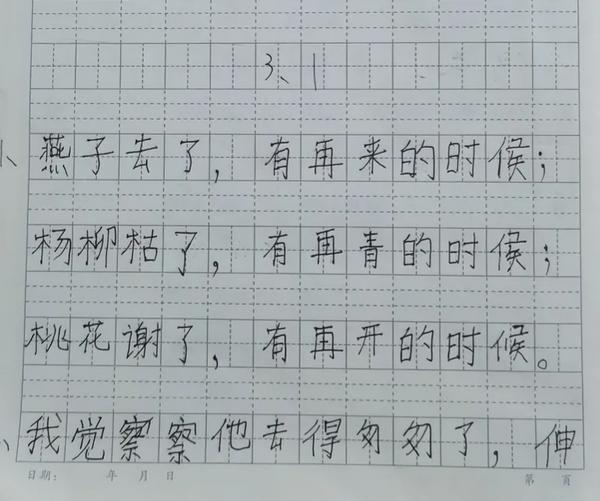 3、1
、燕子去了，有再来的时候；
杨柳枯了，有再青的时候；
桃花谢了，有再开的时候。
、我觉察察他去得匆匆了，伸
日期： 年 月 日 第 页